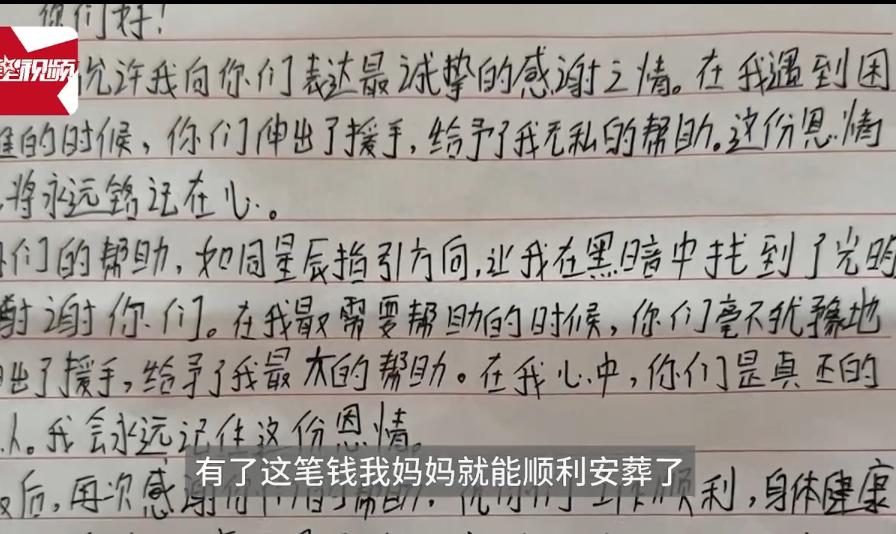 你们好!
视频
允许我向你们表达最诚挚的感谢之情。在我遇到困
的时候，你们伸出了援手，给予了我无私的帮助。这份恩情
将永远铭记在心。
们的帮助，如同星辰指引方向，让我在黑暗中找到了光明
谢谢你们。在我最需要帮助的时候，你们毫不犹豫地
出了援手，给予了我最大的帮助。在我心中，你们是真正的
人。我会永远记住这份恩情。
有了这笔钱我妈妈就能顺利安葬了
后，再次感谢你们的帮助。祝你们工作顺利，身体健康